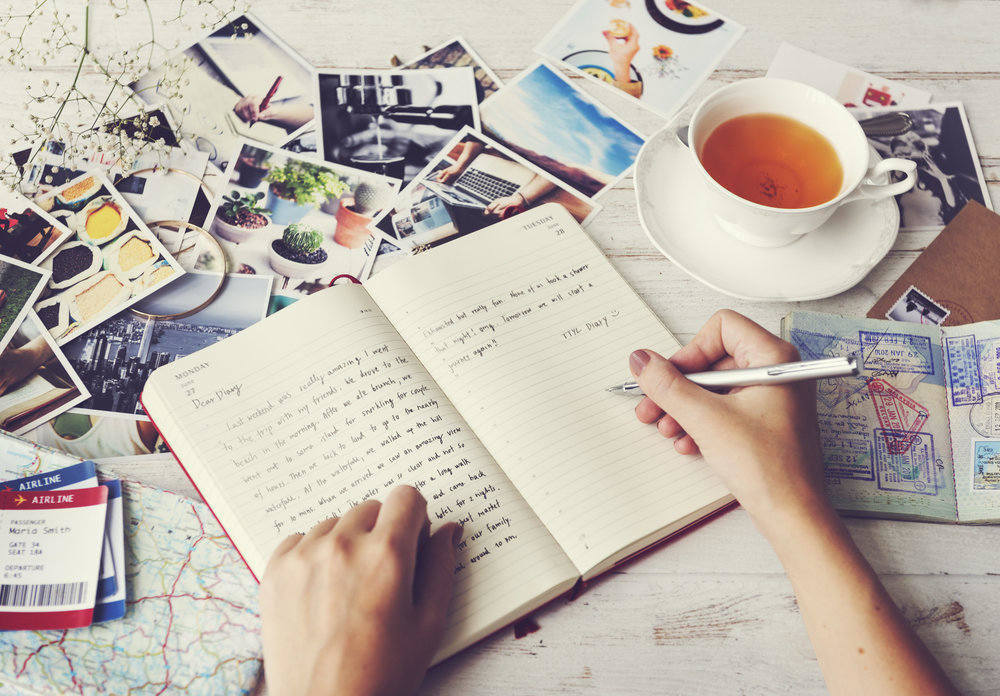 MONDAY
June
27
Dear Diary
Last weekend was really amazing. I went
to the trip with my friends. We drove to the
beach in the morning. After we ate brunch, we
went out to some island for snorkling for couple
of hours. Then we back to land to go to the nearby
waterfall. At the waterfall, we walked up the hill
for 10 mins. When we arrived, we saw an amazing view
of the waterfall! The water was clear and not so
after a long walk
and came back
hotel for 2 nights.
market
for our family.
around 10 pm.
TUESDAY
June
28
Exhausted but really fun. None of us took a shower
that night! omg. Tomorrow we will start a
journey again!!
TTYL Diary
AIRLINE
AIRLINE
PASSENGER
Maria Smith
GATE 34
SEAT 18A
DEPARTURE
6:45
29 JAN